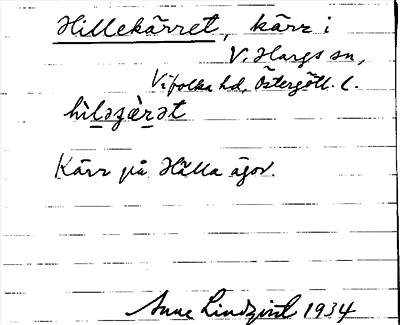 Hillekärret, kärr i
V. Hargs sn,
Vifolka hd, Östergötl. l.
hìləɡæ̀rət
Kärr på Hälla ägor.
Anne Lindqvist 1934